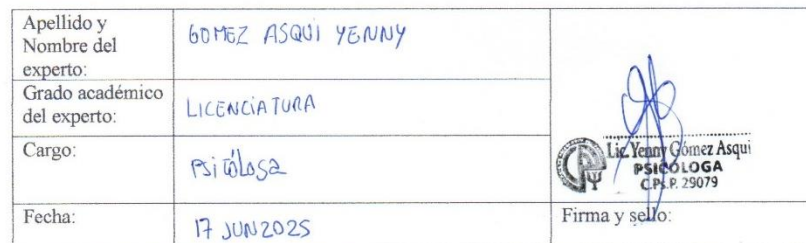 Apellido y
Nombre del
experto:
GOMEZ ASQUI YENNY
Grado académico
del experto:
LICENCIATURA
Cargo:
Psicóloga
Lic. Yenny Gómez Asqui
PSICÓLOGA
C.Ps.P. 29079
Fecha:
17 JUN 2025
Firma y sello: